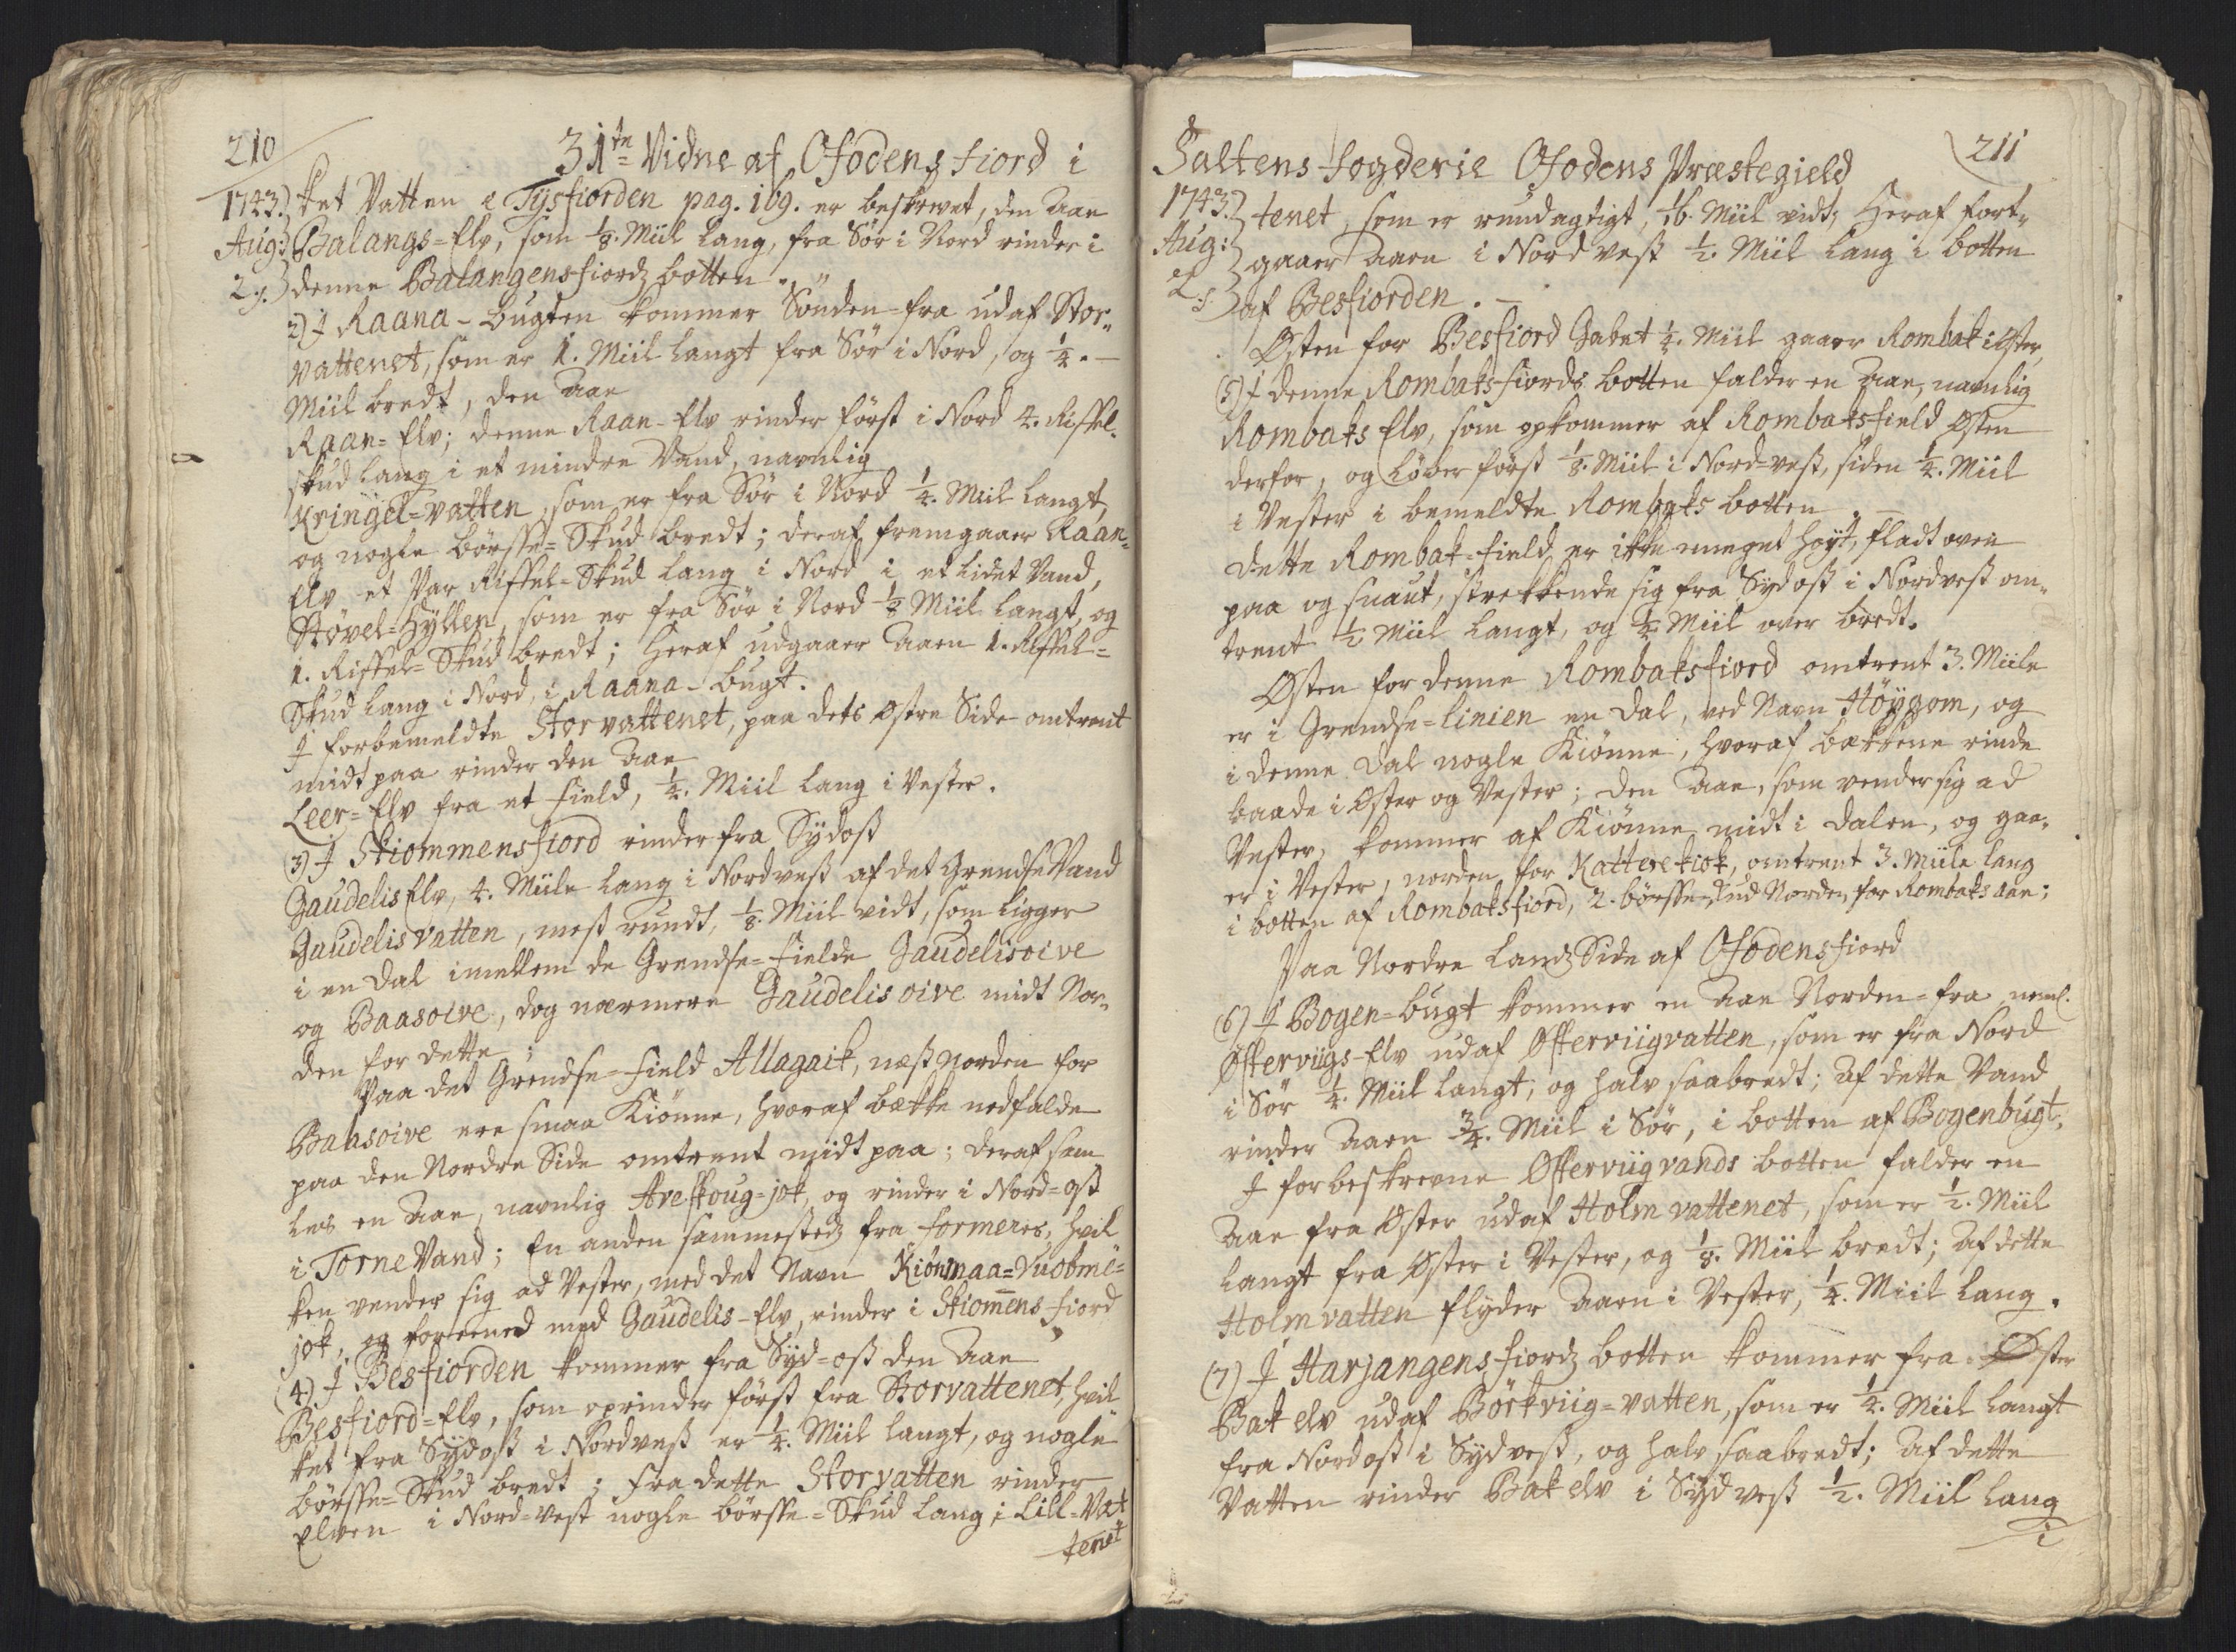 210
31te Vidne af Ofodens fiord i
1743. ket Vatten i Tysfiorden pag. 169. er beskrevet, den Aae
Aug: Balangs=Elv, som 1/8. Miil lang, fra Sør i Nord rinder i
2. denne Balangensfiords botten.
2) I Raana-bugten kommer Sønden=fra ud af Stor=
vattenet, som er 1. Miil langt fra Sør i Nord, og 1/4. —
Miil bredt, den Aae
Raan=Elv; denne Raan-Elv rinder först i Nord 4. Riffel=
skud lang i et mindre Vand, navnlig
Kringel=vatten, som er fra Sør i Nord 1/4. Miil langt,
og nogle börsse=Skud bredt; deraf fremgaaer Raan=
Elv et Par Riffel=Skud lang i Nord i et lidet Vand,
Støvel=Hyllen, som er fra Sør i Nord 1/8 Miil langt, og
1. Riffel=Skud bredt; Heraf udgaaer Aaen 1. Riffel=
Skud lang i Nord, i Raana-bugt.
I forbemeldte Storvattenet, paa dets østre Side omtrent
midt paa rinder den Aae
Leer=Elv fra et Field, 1/4. Miil lang i Vester.
3) I Skiommensfiord rinder fra Sydost
Gaudelis Elv, 4. Miile lang i Nordvest af det Grendse Vand
Gaudelisvatten, mest rundt, 1/8. Miil vidt, som ligger
i en Dal imellem de Grendse=Fielde Gaudelisoive
og Baasoive, dog nærmere Gaudelisoive midt Nor=
den for dette;
Paa det Grendse=Field Allagaik, næst Norden for
Baasoive ere smaa Kiönne, hvoraf bække nedfalde
paa den Nordre Side omtrent midt paa; deraf sam
les en Aae, navnlig Aveskoug=jok, og rinder i Nord=ost
i Torne Vand; En anden sammesteds fra formeres, hvil
ken vender sig ad Vester, med det Navn Kiönmaa=Vuobme=
jok, og foreened med Gaudelis-Elv, rinder i Skiomens fiord
(4) I Besfiorden kommer fra Syd=ost den Aae
Besfiord=Elv, som oprinder först fra Storvattenet, hvil
ket fra Sydost i Nordvest er 1/4. Miil langt, og nogle
börsse=Skud bredt; fra dette Storvatten rinder
Elven i Nord=vest nogle börsse=Skud lang i Lill=Vat
tenet
Saltens fogderie Ofodens Præstegield
211
1743. tenet, som er rundagtigt, 1/16. Miil vidt; Heraf fort=
Aug: gaaer Aaen i Nordvest 1/2. Miil lang i botten
2. af Besfiorden. —
Østen for Besfiord Gabet 1/4. Miil gaaer Rombak i Øster,
(5) I denne Rombaksfiords botten falder en Aae, navnlig
Rombaks Elv, som opkommer af Rombaksfield Østen
derfor, og löber först 1/8. Miil i Nord=vest, siden 1/4. Miil
i Vester i bemeldte Rombaks botten. —
Dette Rombak=field, er ikke meget høyt, fladt oven
paa og snaut, strekkende sig fra Sydost i Nordvest om=
trent 1/2 Miil langt, og 1/4 Miil over bredt.
Østen for denne Rombaksfiord omtrent 3. Miile
er i Grendse=linien en Dal, ved Navn Höygom, og
i denne Dal nogle Kiönne, hvoraf bækkene rinde
baade i Øster og Vester; den Aae, som vender sig ad
Vester, kommer af Kiönne midt i Dalen, og gaa=
er i Vester, norden for Katterekiok, omtrent 3. Miile lang
i botten af Rombaksfiord, 2. börsse=Skud Norden for Rombaks Aae;
Paa Nordre Lands Side af Ofodensfiord
(6) I Bogen=bugt kommer en Aae Norden=fra neml.
Østerviigs-Elv ud af Østerviigvatten, som er fra Nord
i Sør 1/4. Miil langt, og halv saa bredt; Af dette Vand
rinder Aaen 3/4. Miil i Sør, i botten af Bogenbugt,
I forbeskrevne Østerviigvands botten falder en
Aae fra Øster ud af Holmvattenet, som er 1/2. Miil
langt fra Øster i Vester, og 1/8. Miil bredt; Af dette
Holmvatten flyder Aaen i Vester, 1/4. Miil lang.
(7) I Harjangens fiords botten kommer fra Øster
Bak elv ud af Börkviig=vatten, som er 1/4. Miil langt
fra Nordost i Sydvest, og halv saa bredt; Af dette
Vatten rinder Bak elv i Sydvest 1/2. Miil lang
i